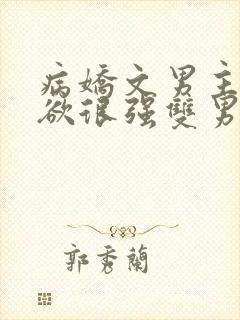 病嬌文男主
欲很强雙男
郭秀蘭